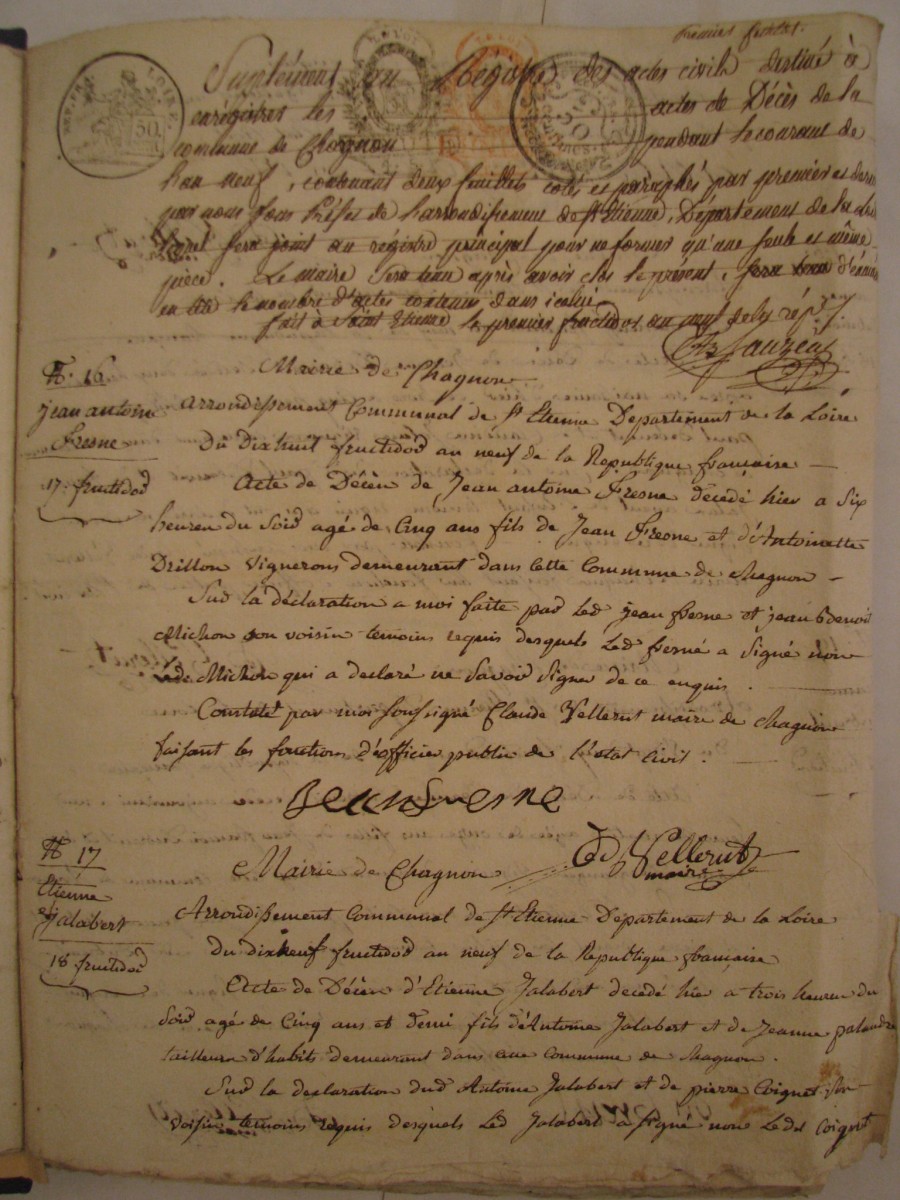 premier feuillet.
Suplément au Régistre des actes civils destiné à
enrégistrer les actes de Décès de la
commune de Chagnon pendant le courant de
l'an neuf, contenant deux feuillets cotés et paraphés par premier et dernier
par nous Sous Préfet de l'arrondissement de St Etienne, Département de la Loire
lequel sera joint au régistre principal pour ne former qu'une seule et même
pièce. Le maire sera tenu après avoir clos le présent,
en tête le nombre d'actes contenus dans icelui
fait à Saint Etienne le premier fructidor an neuf de la rép.
N. 16.
jean antoine
Fresne
17. fructidor
Mairie de Chagnon
arrondissement Communal de St Etienne Departement de la Loire
Du Dixhuit fructidor an neuf de la Republique francaise
Acte de Décèn de Jean antoine Fresne decedé hier a Six
heuren du Soir agé de Cinq ans fils de Jean Fresne et d'Antoinette
Drillon Vignerons demeurant dans cette Commune de Chagnon
Sur la déclaration a moi faite par led jean fresne et jean Benoit
Michon son voisin temoins requis desquels led fresne a Signé non
led Michon qui a declaré ne Savoir Signer de ce enquis.
Constaté par moi Soussigné Claude Vellerut maire de Chagnon
faisant les fonctions d'officier public de l'état Civil.
Jean Fresne
Cd Vellerut
maire
N 17
Etienne
Jalabert
18 fructidor
Mairie de Chagnon
Arrondissement Communal de St Etienne Departement de la Loire
Du dixneuf fructidor an neuf de la Republique francaise
Acte de Décèn d'Etienne Jalabert decedé hier a trois heuren du
Soir agé de Cinq ans et demi fils d'Antoine Jalabert et de Jeanne palandre
tailleurn d'habits demeurant dans cette Commune de Chagnon.
Sur la declaration dud Antoine Jalabert et de pierre Coignet son
voisin temoins requis desquels led Jalabert a signé non led Coignet